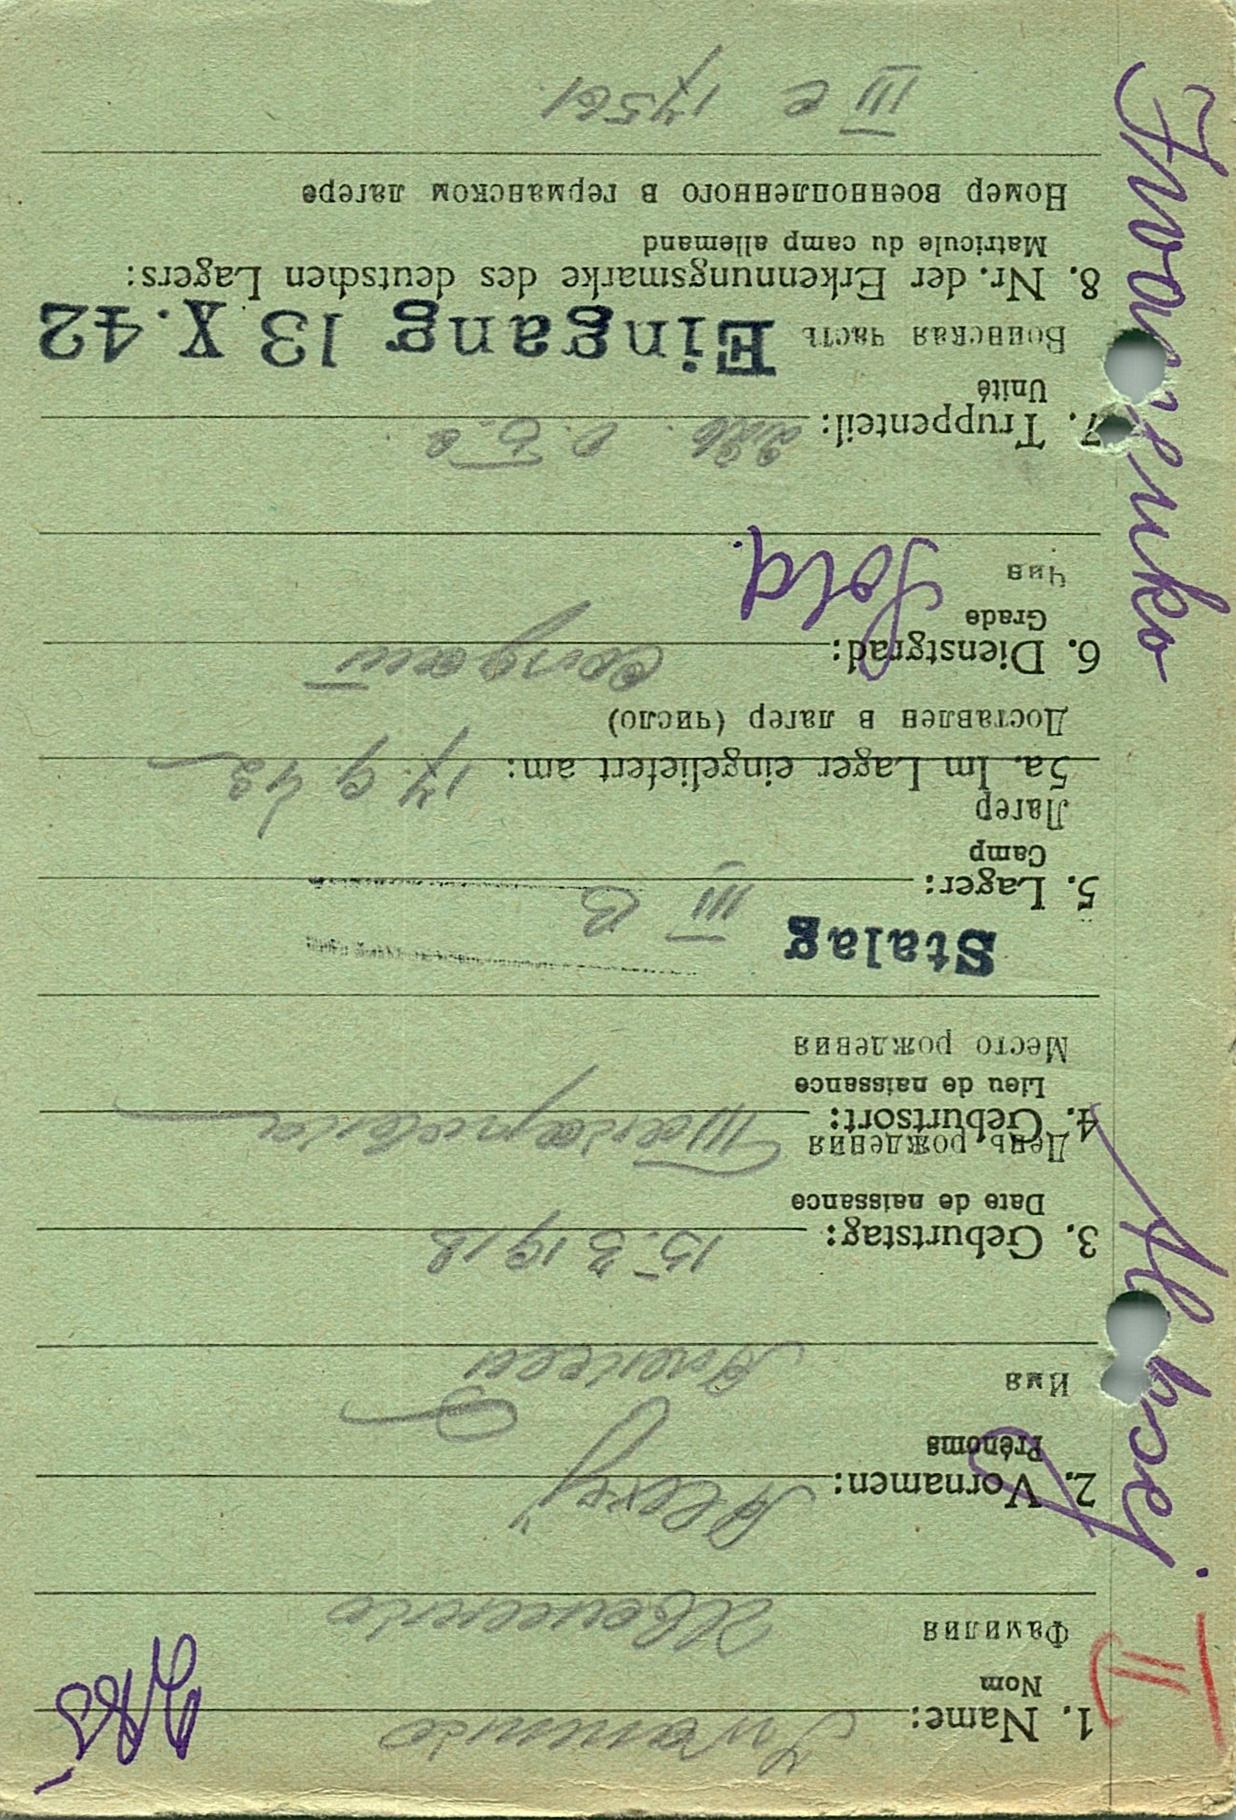 1. Name: Iwanenko
Nom
Фамилия Иваненко
2. Vornamen: Alexej
Prénoms
Имя Алексей
3. Geburtstag: 15.3.1918
Date de naissance
День рождения
4. Geburtsort:
Lieu de naissance
Место рождения
Stalag
5. Lager: III B
Camp
Лагерь
5a. Im Lager eingeliefert am: 17.9.42
Доставлен в лагер (число)
6. Dienstgrad: Sold.
Grade
Чин
7. Truppenteil:
Unité
Воинская часть Eingang 13 X. 42
8. Nr. der Erkennungsmarke des deutschen Lagers:
Matricule du camp allemand
Номер военнопленного в германском лагере
III C 17561.
Alexej
II